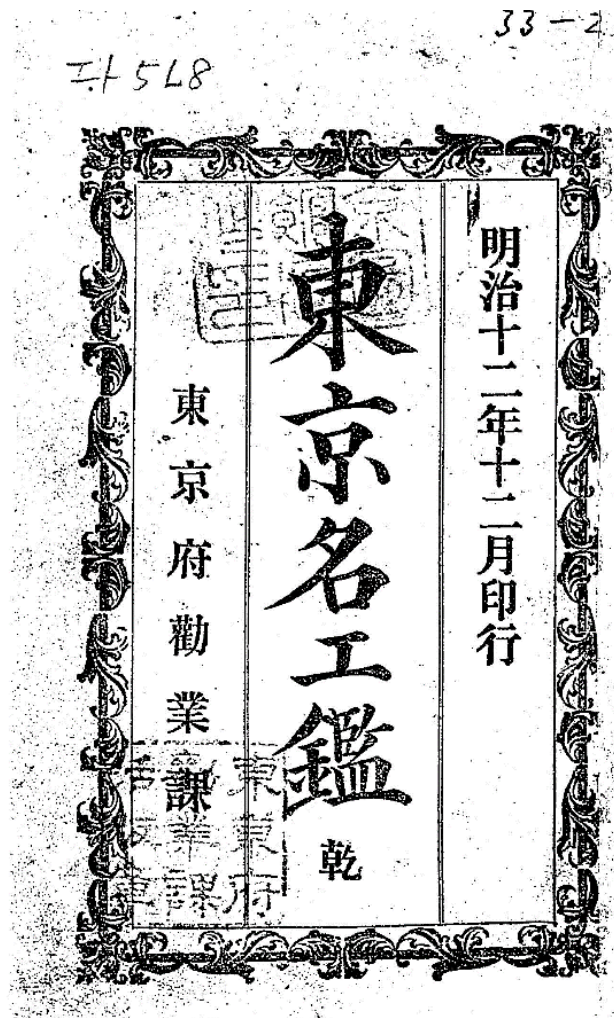 33-2
明治十二年十二月印行
東京名工鑑 乾
東京府勸業課